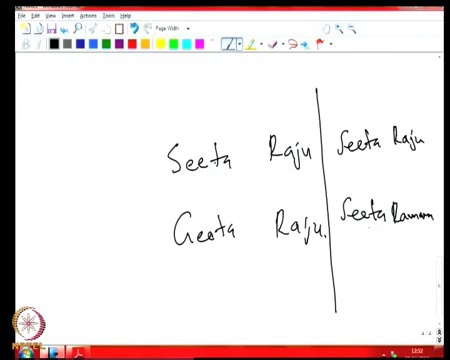 File Edit View Insert Actions Tools Help
Page Width
Seeta Raju Seeta Raju
Geeta Raju. Seeta Ramana
NPTEL
12:52